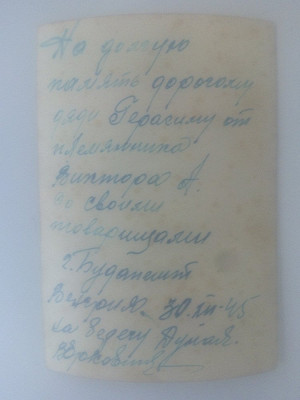 На долгую
память дорогому
дяде Герасиму от
племянника
Виктора А.
со своими
товарищами
г. Будапешт
Венгрия. 30.XII-45
на берегу Дуная.